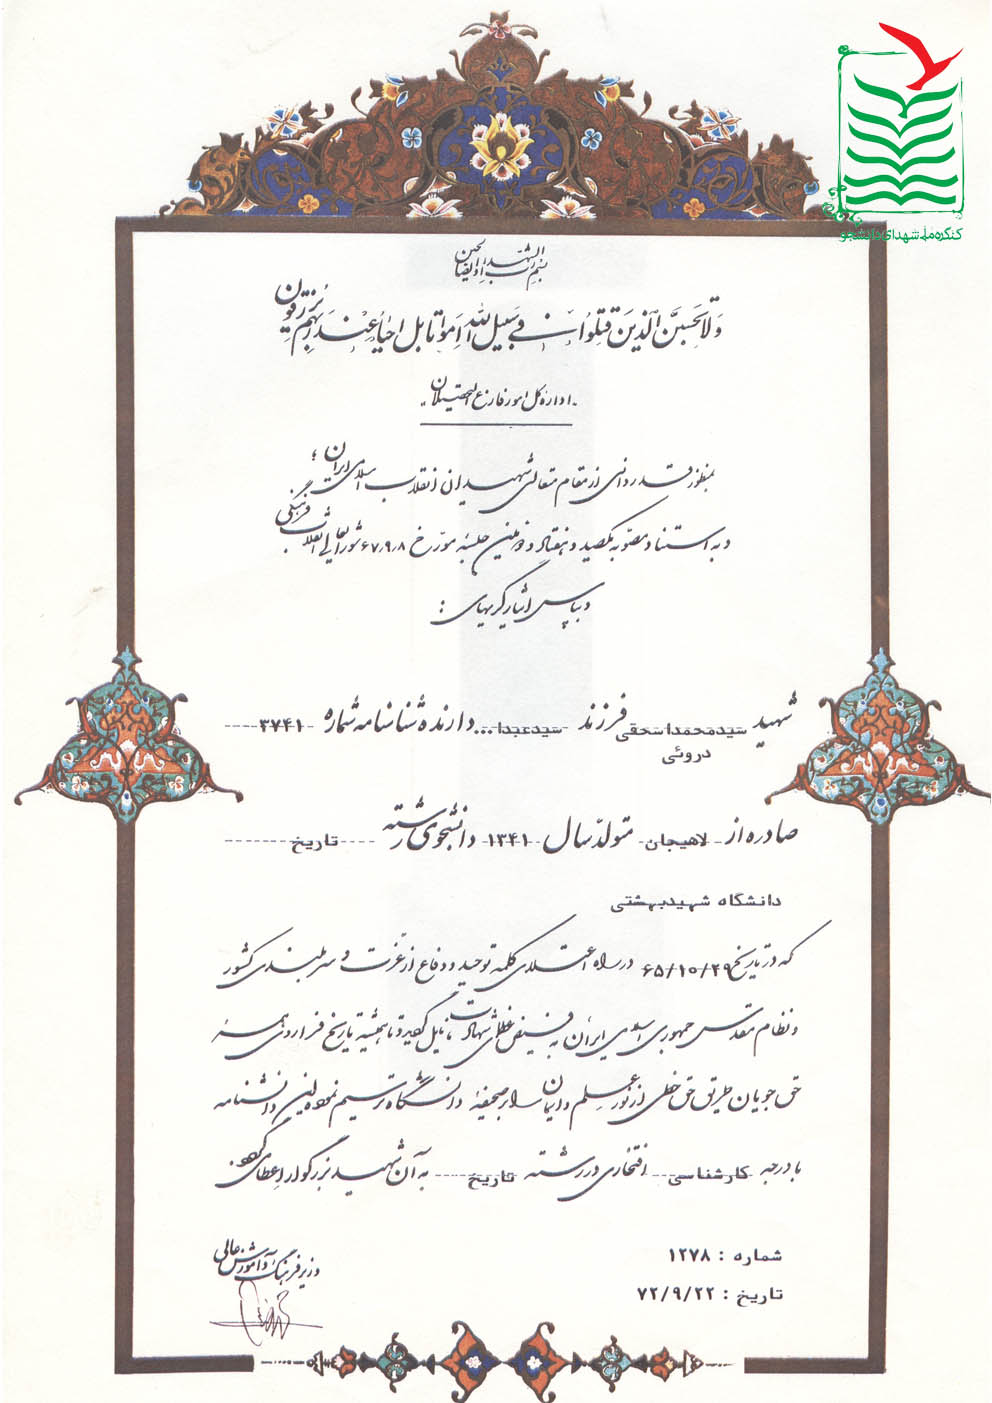 کنگره ملی شهدای دانشجو
بسم رب الشهداء و الصالحین
ولا تحسبن الذین قتلوا فی سبیل الله امواتا بل احیاء عند ربهم یرزقون
اداره کل امور فارغ التحصیلان
بمنظور قدردانی از مقام متعالی شهیدان انقلاب اسلامی ایران ؛
و به استناد مصوبه یکصد و هفتاد و نهمین جلسه مورخ ۶۷/۹/۸ شورایعالی انقلاب فرهنگی
و بپاس ایثارگریهای :
شهید سیدمحمد اسحقی دروئی فرزند سیدعبدا... دارنده شناسنامه شماره ۳۷۴۱
صادره از لاهیجان متولد سال ۱۳۴۱ دانشجوی رشته تاریخ
دانشگاه شهیدبهشتی
که در تاریخ ۶۵/۱۰/۲۹ در راه اعتلای کلمه توحید و دفاع از عزت و سربلندی کشور
و نظام مقدس جمهوری اسلامی ایران به فیض عظمای شهادت نایل گردید و تا همیشه تاریخ فراروی همه
حق جویان طریق حق خطی از نور علم و ایمان را بر صحیفه دانشگاه ترسیم نموده این دانشنامه
با درجه کارشناسی افتخاری در رشته تاریخ به آن شهید بزرگوار اعطا می گردد
شماره : ۱۲۷۸
تاریخ : ۷۲/۹/۲۲
وزیر فرهنگ و آموزش عالی